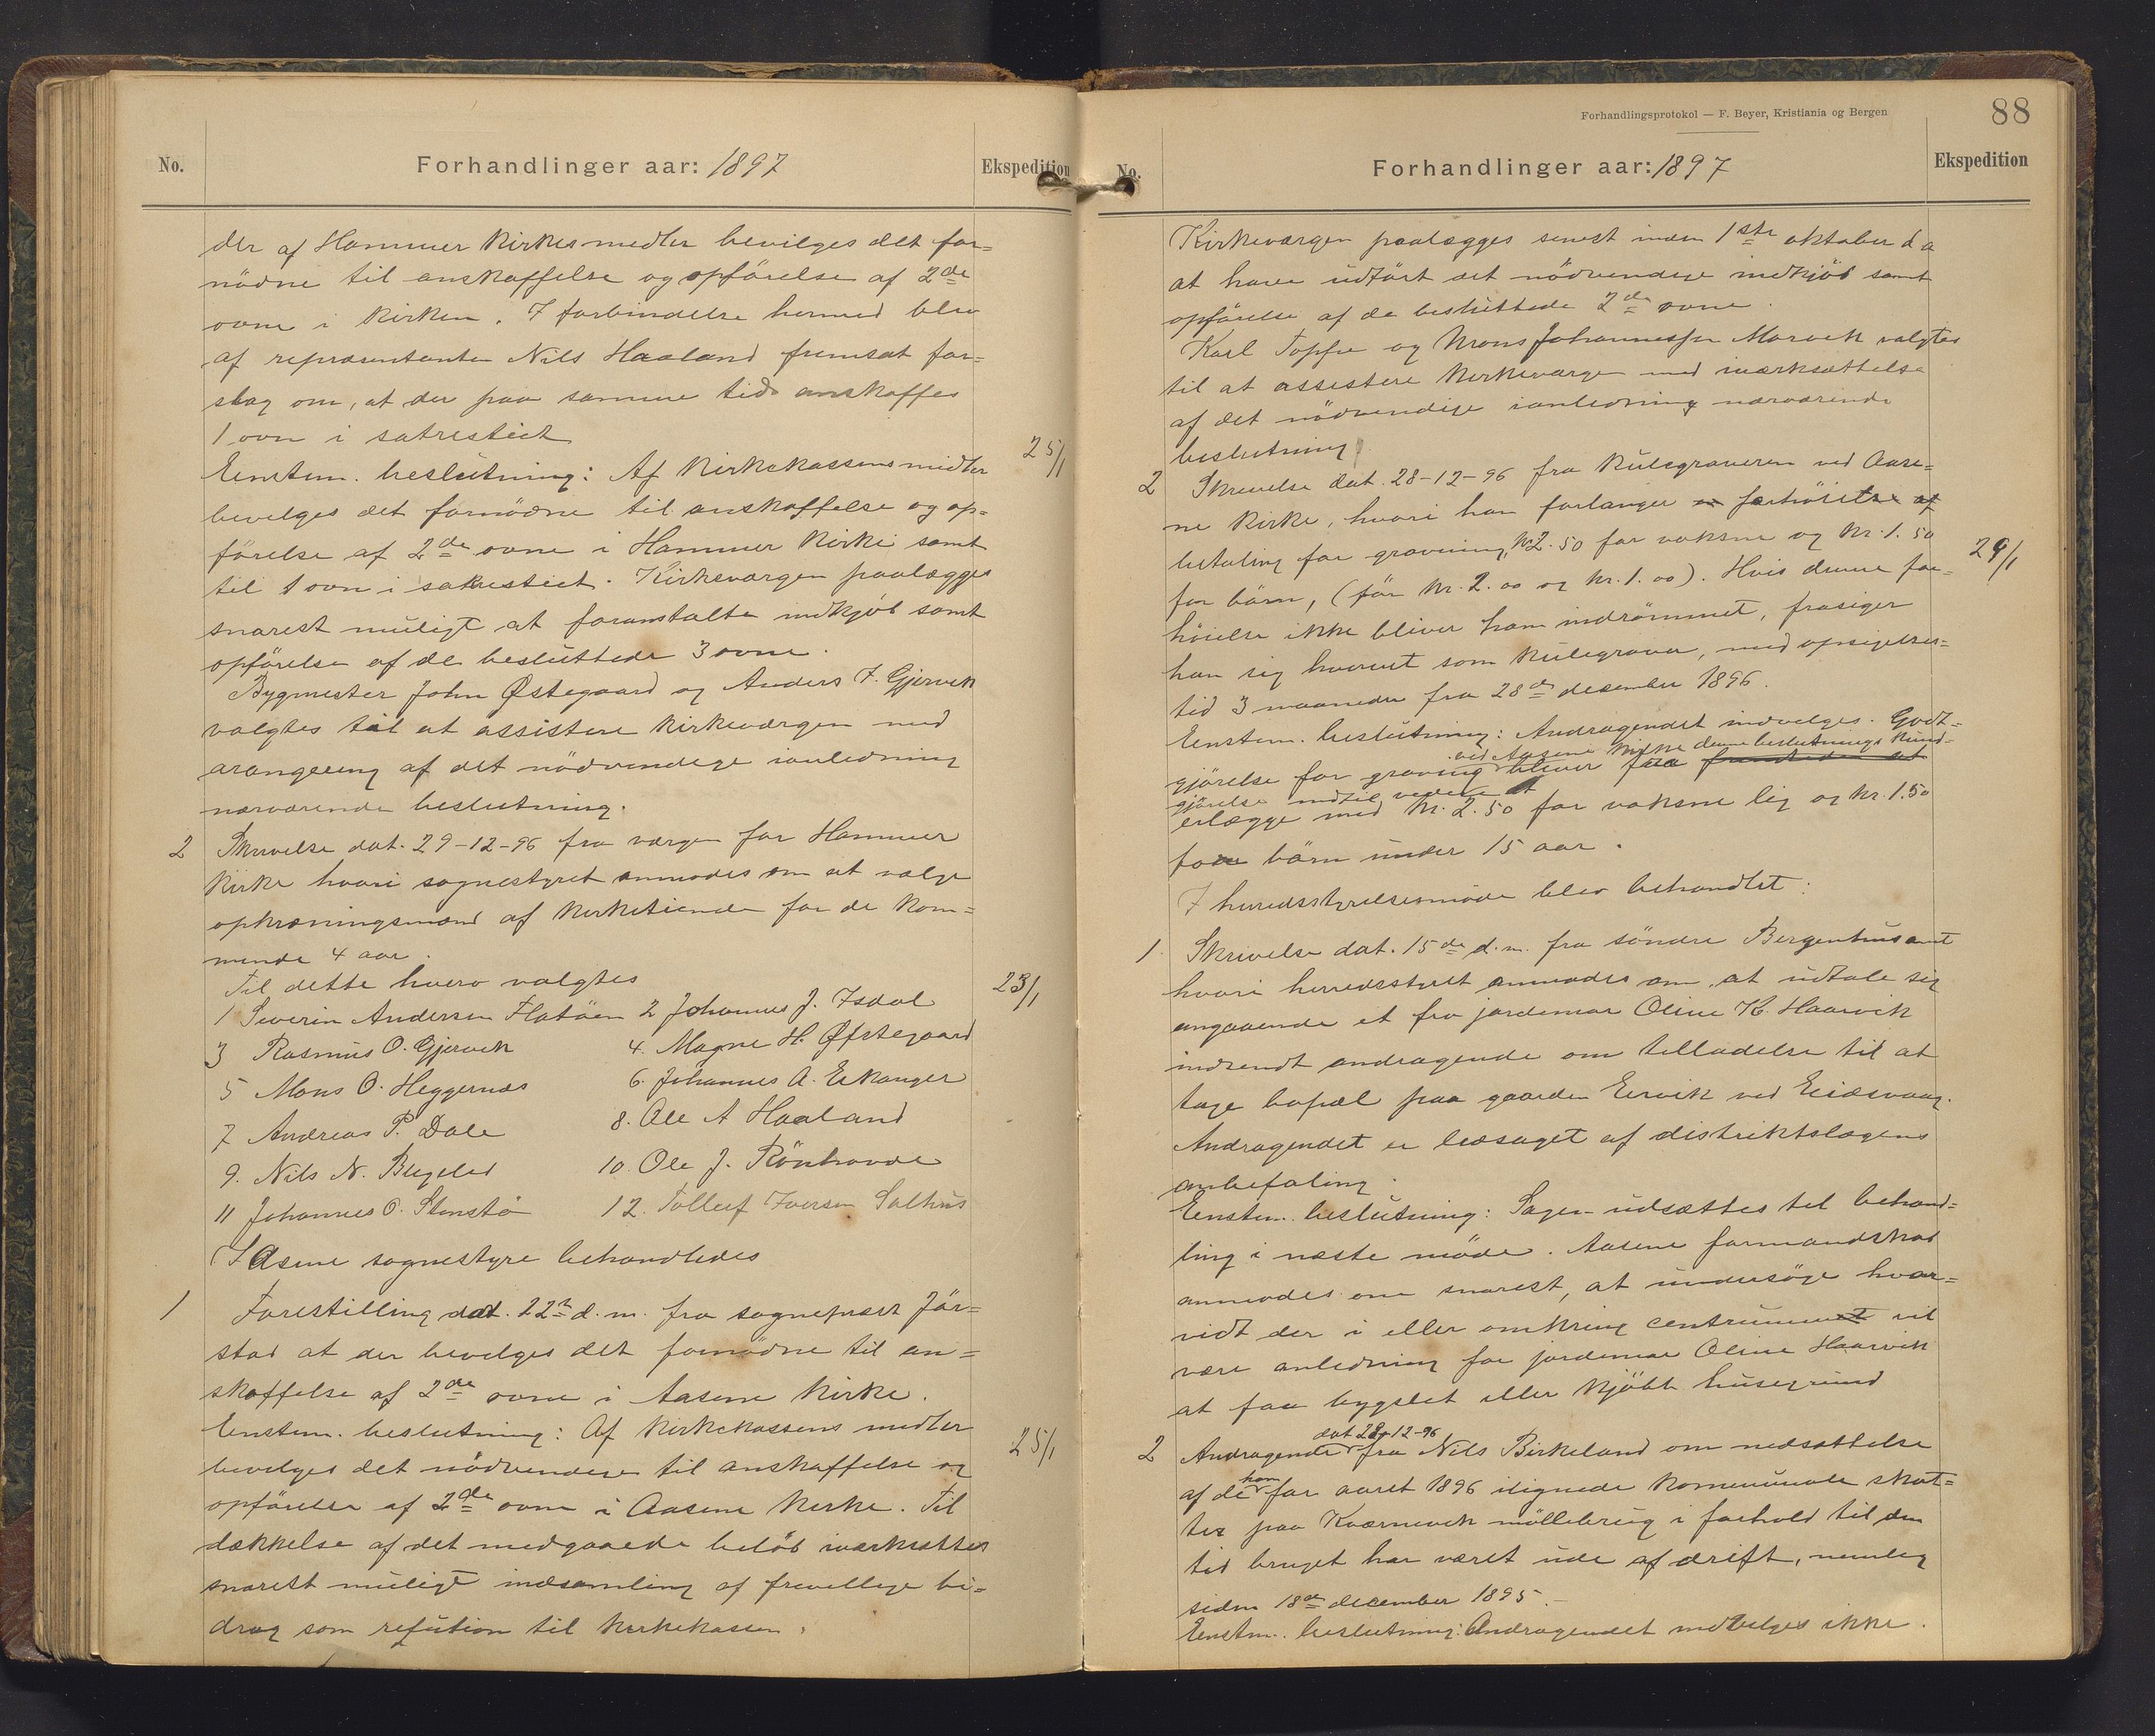 No.
Forhandlinger aar: 1897
Ekspedition
der af Hammer Kirkes midler bevilges det for=
nödne til anskaffelse og opförelse af 2de
ovne i Kirken. I forbindelse hermed blev
af repræsentanten Nils Haaland fremsat for=
slag om, at der paa samme tid anskaffes
1 ovn i sakrestiet
25/1
Eenstem. beslutning: Af Kirkekassens midler
bevilges det fornödne til anskaffelse og op=
förelse af 2de ovne i Hammer Kirke samt
til 1 ovn i sakrestiet. Kirkeværgen paalægges
snarest muligt at foranstalte indkjöb samt
opförelse af de besluttede 3 ovne.
Bygmester John Østegaard og Anders I. Gjervik
valgtes til at assistere Kirkeværgen med
arangering af det nödvendige ianledning
nærværende beslutning.
2 Skrivelse dat. 29-12-96 fra værgen for Hammer
Kirke hvori sognestyret anmodes om at vælge
opkrævningsmænd af Kirketiende for de kom=
mende 4 aar.
Til dette hverv valgtes
23/1
1 Severin Andersen Flatöen 2 Johannes J. Isdal
3 Rasmus O. Gjervik 4. Magne H. Øfstegaard
5 Mons O. Heggernæs 6. Johannes A. Eikanger
7 Andreas P. Dale 8. Ole A Haaland
9. Nils N. Blegeled 10. Ole J. Rönhovde
11 Johannes O. Stenstö 12. Tollef Iversen Salhus
I Asene sognestyre behandledes
1 Forestilling dat. 22n d. m. fra sogneprest Jör=
stad at der bevilges det fornödne til an=
skaffelse af 2de ovne i Aasene Kirke.
Eenstem. beslutning: Af Kirkekassens midler
25/1
bevilges det nödvendige til anskaffelse og
opförelse af 2de ovne i Aasene Kirke. Til
dækkelse af det medgaaede belöb iværksættes
snarest muligt indsamling af frivillige bi=
drag som refution til Kirkekassen.
Forhandlingsprotokol — F. Beyer, Kristiania og Bergen
88
No.
Forhandlinger aar: 1897
Ekspedition
Kirkeværgen paalægges senest inden 1ste oktober d a
at have udfört det nödvendige indkjöb samt
opförelse af de besluttede 2de ovne.
Karl Toppe og Mons Johannessen Morvik valgtes
til at assistere Kirkeværgen med iværksættelse
af det nödvendige ianledning nærværende
beslutning
2 Skrivelse dat. 28-12-96 fra Kulegraveren ved Aase=
ne Kirke, hvori han forlanger en forhöielse af
betaling for gravning, Kr 2.50 for voksne og Kr. 1.50
29/1
for börn, (för Kr. 2.00 og Kr. 1.00). Hvis denne for=
höielse ikke bliver ham indrömmet, frasiger
han sig hvervet som Kulegraver, med opsigelses=
tid 3 maaneder fra 28de desember 1896.
Eenstem. beslutning: Andragendet indvilges. Godt=
ved Aasene Kirke denne beslutnings Kund=
gjörelse for graving bliver fra fremtiden at
gjörelse indtil videre at
erlægge med Kr. 2.50 for voksne lig og Kr. 1.50
for börn under 15 aar.
I herredsstyrelsesmöde blev behandlet:
1. Skrivelse dat. 15de d. m. fra söndre Bergenhus amt
hvori herredsstyret anmodes om, at udtale sig
angaaende et fra jordemor Oline K. Haarvik
indsendt andragende om tilladelse til at
tage bopæl paa gaarden Eervik ved Eidsvaag.
Andragendet er ledsaget af distriktslægens
anbefaling.
Eenstem. beslutning: Sagen udsættes til behand=
ling i næste möde. Aasene formandskab
anmodes om snarest, at undersöge hvor=
vidt der i eller omkring centrummet vil
være anledning for jordemor Oline Haarvik
at faa bygslet eller kjöbt husegrund
dat 28-12-96
2 Andragende fra Nils Birkeland om nedsættelse
ham
af de for aaret 1896 ilignede kommunale skat=
ter paa Kværnevik möllebrug i forhold til den
tid bruget har været ude af drift, nemlig
siden 18de december 1895.—
Eenstm. beslutning: Andragendet indvilges ikke.